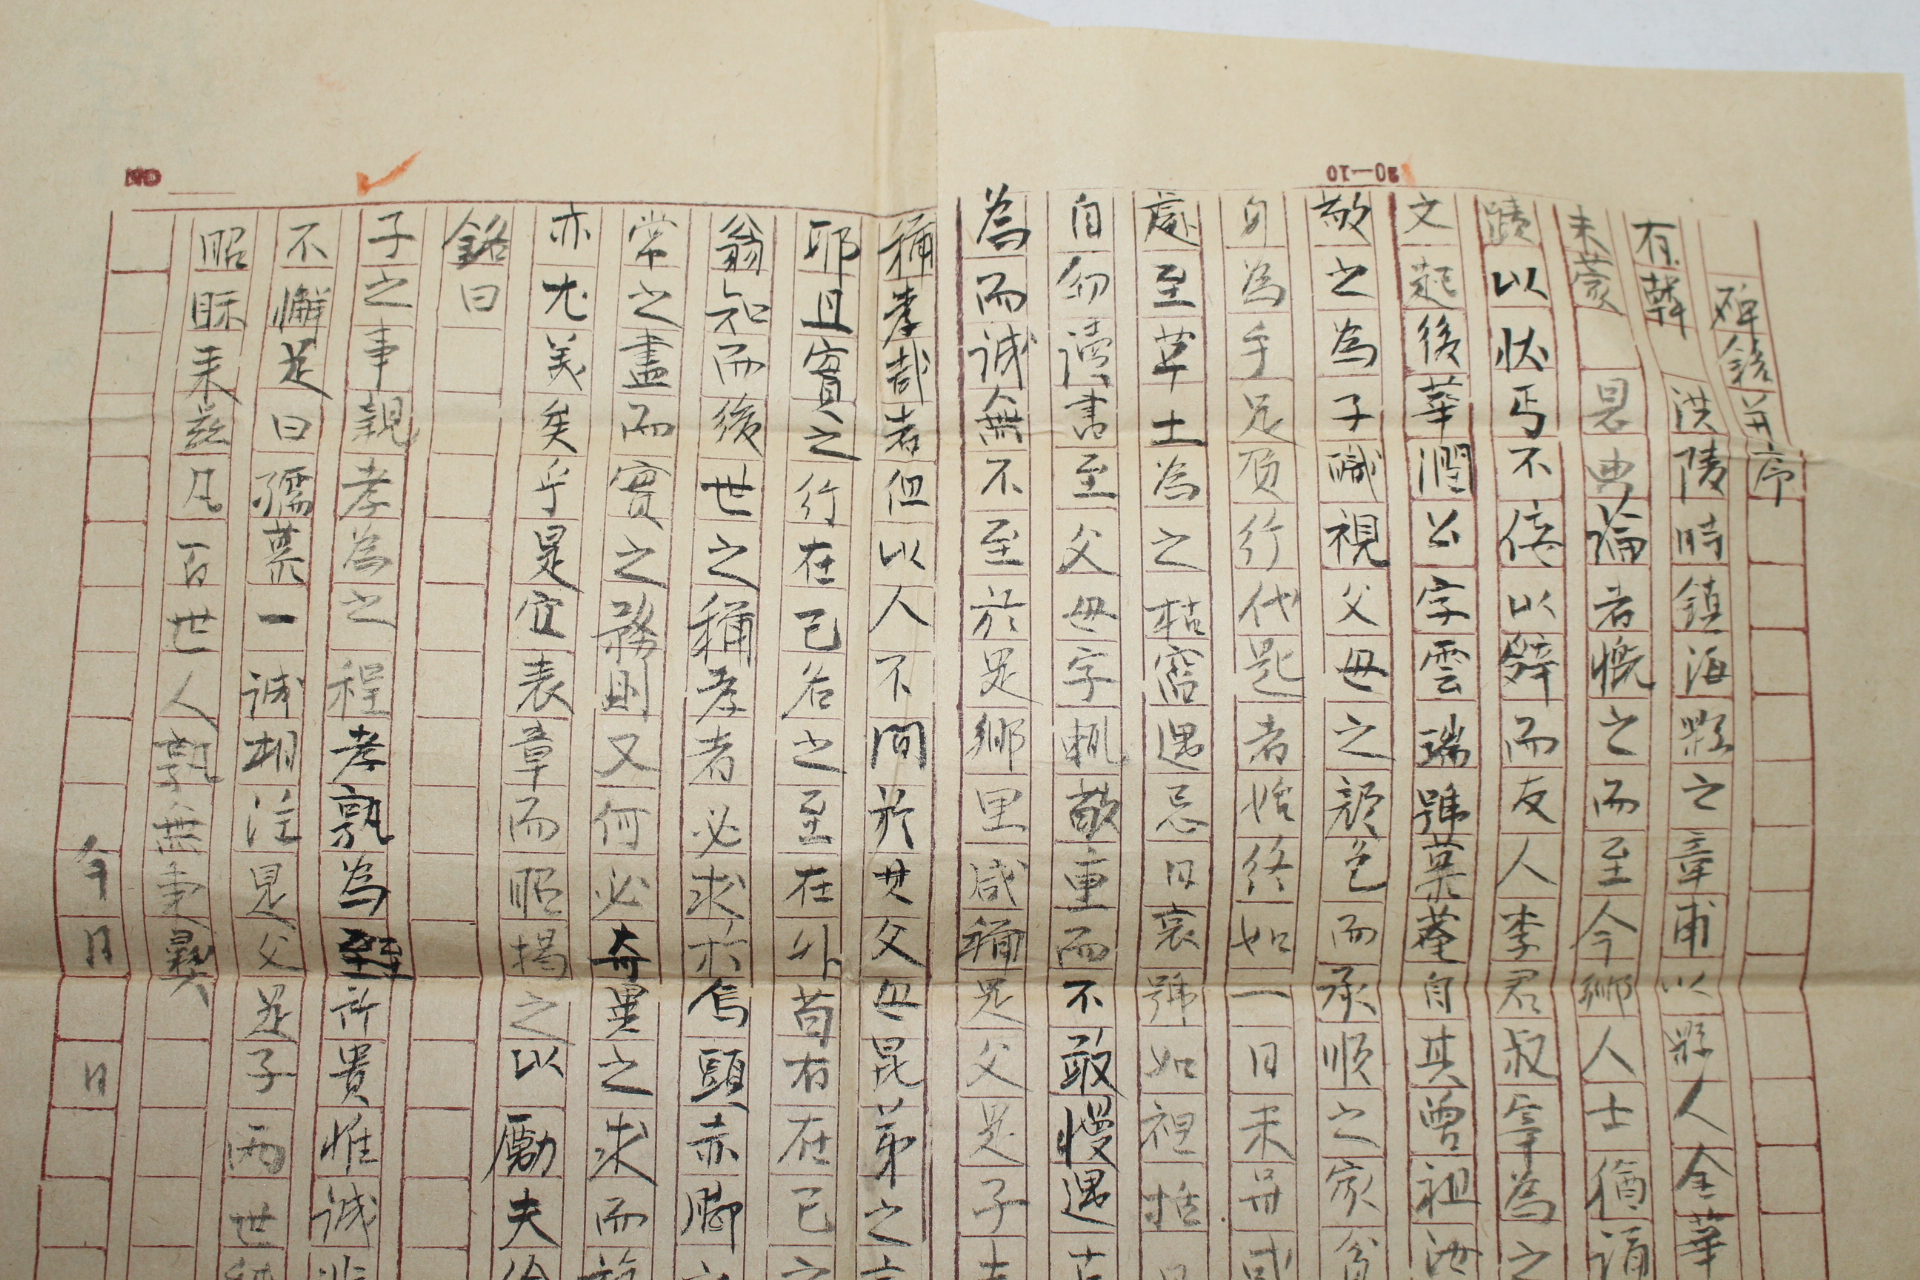 碑銘并序
有韓 洪陵時鎮海縣之章甫以縣人金華
未蒙 恩典論者慨之而至今鄉人士猶誦
蹟以狀丐不侫以辭而友人李君叔宰為之
文起後華潤公字雲瑞號菊菴自其曾祖
敬之為子職視父母之顏色而承順之家貧
身為手足頂行代匙者始終如一日未毋或
處至草土為之枯窘遇忌日哀號如袒括
自幼讀書至父母字輒敬重而不敢慢遇古
為而誠無不至於是鄉里咸稱是父是子
稱孝哉者但以人不間於其父母昆弟之言
耶且實之行在己名之至在外苟有在己之
翁知而後世之稱孝者必求於烏頭赤脚
常之盡而實之務則又何必奇異之求而
亦尤美矣乎是宜表章而昭揭之以勵夫
銘曰
子之事親孝為之程孝孰為 許貴惟誠非
不懈是曰孺慕一誠相注是父是子兩世
昭昭來茲凡百世人孰無秉彛
今 月 日
20—10
NO